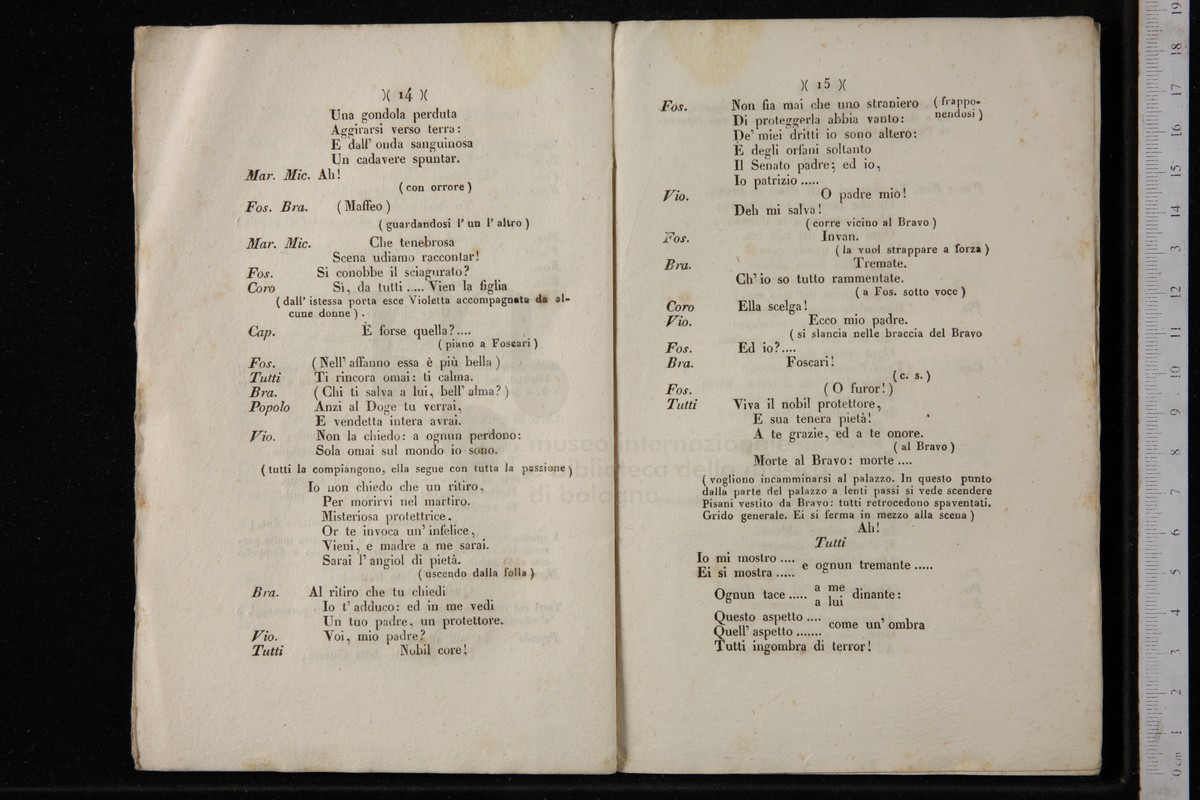 )( 14 )(
Una gondola perduta
Aggirarsi verso terra:
E dall' onda sanguinosa
Un cadavere spuntar.
Mar. Mic. Ah!
( con orrore )
Fos. Bra. ( Maffeo )
( guardandosi l' un l' altro )
Mar. Mic. Che tenebrosa
Scena udiamo raccontar!
Fos. Si conobbe il sciagurato?
Coro Si, da tutti ..... Vien la figlia
( dall' istessa porta esce Violetta accompagnata da al-
cune donne ) .
Cap. È forse quella?....
( piano a Foscari )
Fos. ( Nell' affanno essa è più bella )
Tutti Ti rincora omai: ti calma.
Bra. ( Chi ti salva a lui, bell' alma? )
Popolo Anzi al Doge tu verrai,
E vendetta intera avrai.
Vio. Non la chiedo: a ognun perdono:
Sola omai sul mondo io sono.
( tutti la compiangono, ella segue con tutta la passione )
Io non chiedo che un ritiro,
Per morirvi nel martiro.
Misteriosa protettrice,
Or te invoca un' infelice,
Vieni, e madre a me sarai.
Sarai l' angiol di pietà.
( uscendo dalla folla )
Bra. Al ritiro che tu chiedi
Io t' adduco: ed in me vedi
Un tuo padre, un protettore.
Vio. Voi, mio padre?
Tutti Nobil core!
)( 15 )(
Fos. Non fia mai che uno straniero ( frappo-
Di proteggerla abbia vanto: nendosi )
De' miei dritti io sono altero:
È degli orfani soltanto
Il Senato padre; ed io,
Io patrizio .....
Vio. O padre mio!
Deh mi salva!
( corre vicino al Bravo )
Fos. Invan.
( la vuol strappare a forza )
Bra. Tremate.
Ch' io so tutto rammentate.
( a Fos. sotto voce )
Coro Ella scelga!
Vio. Ecco mio padre.
( si slancia nelle braccia del Bravo
Fos. Ed io?....
Bra. Foscari!
( c. s. )
Fos. ( O furor! )
Tutti Viva il nobil protettore,
E sua tenera pietà!
A te grazie, ed a te onore.
( al Bravo )
Morte al Bravo: morte ....
( vogliono incamminarsi al palazzo. In questo punto
dalla parte del palazzo a lenti passi si vede scendere
Pisani vestito da Bravo: tutti retrocedono spaventati.
Grido generale. Ei si ferma in mezzo alla scena )
Ah!
Tutti
Io mi mostro ....
Ei si mostra ..... e ognun tremante .....
Ognun tace ..... a me
a lui dinante:
Questo aspetto ....
Quell' aspetto ....... come un' ombra
Tutti ingombra di terror!
museo internazionale
e biblioteca della musica
di bologna